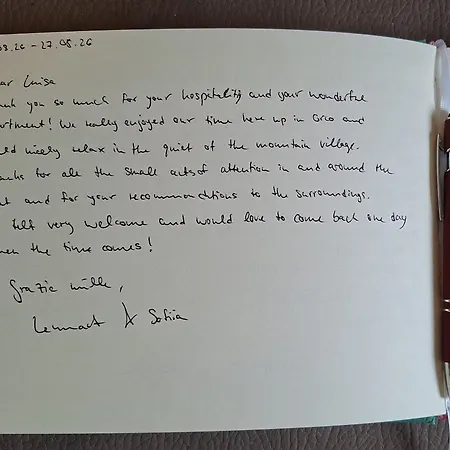 08.26 - 27.08.26
ar Luisa
ank you so much for your hospitality and your wonderful
artment! We really enjoyed our time here up in Orco and
ld nicely relax in the quiet of the mountain village.
anks for all the small acts of attention in and around the
and for your recommendations to the surroundings.
felt very welcome and would love to come back one day
hen the time comes!
Grazie mille,
Lennart & Sofia